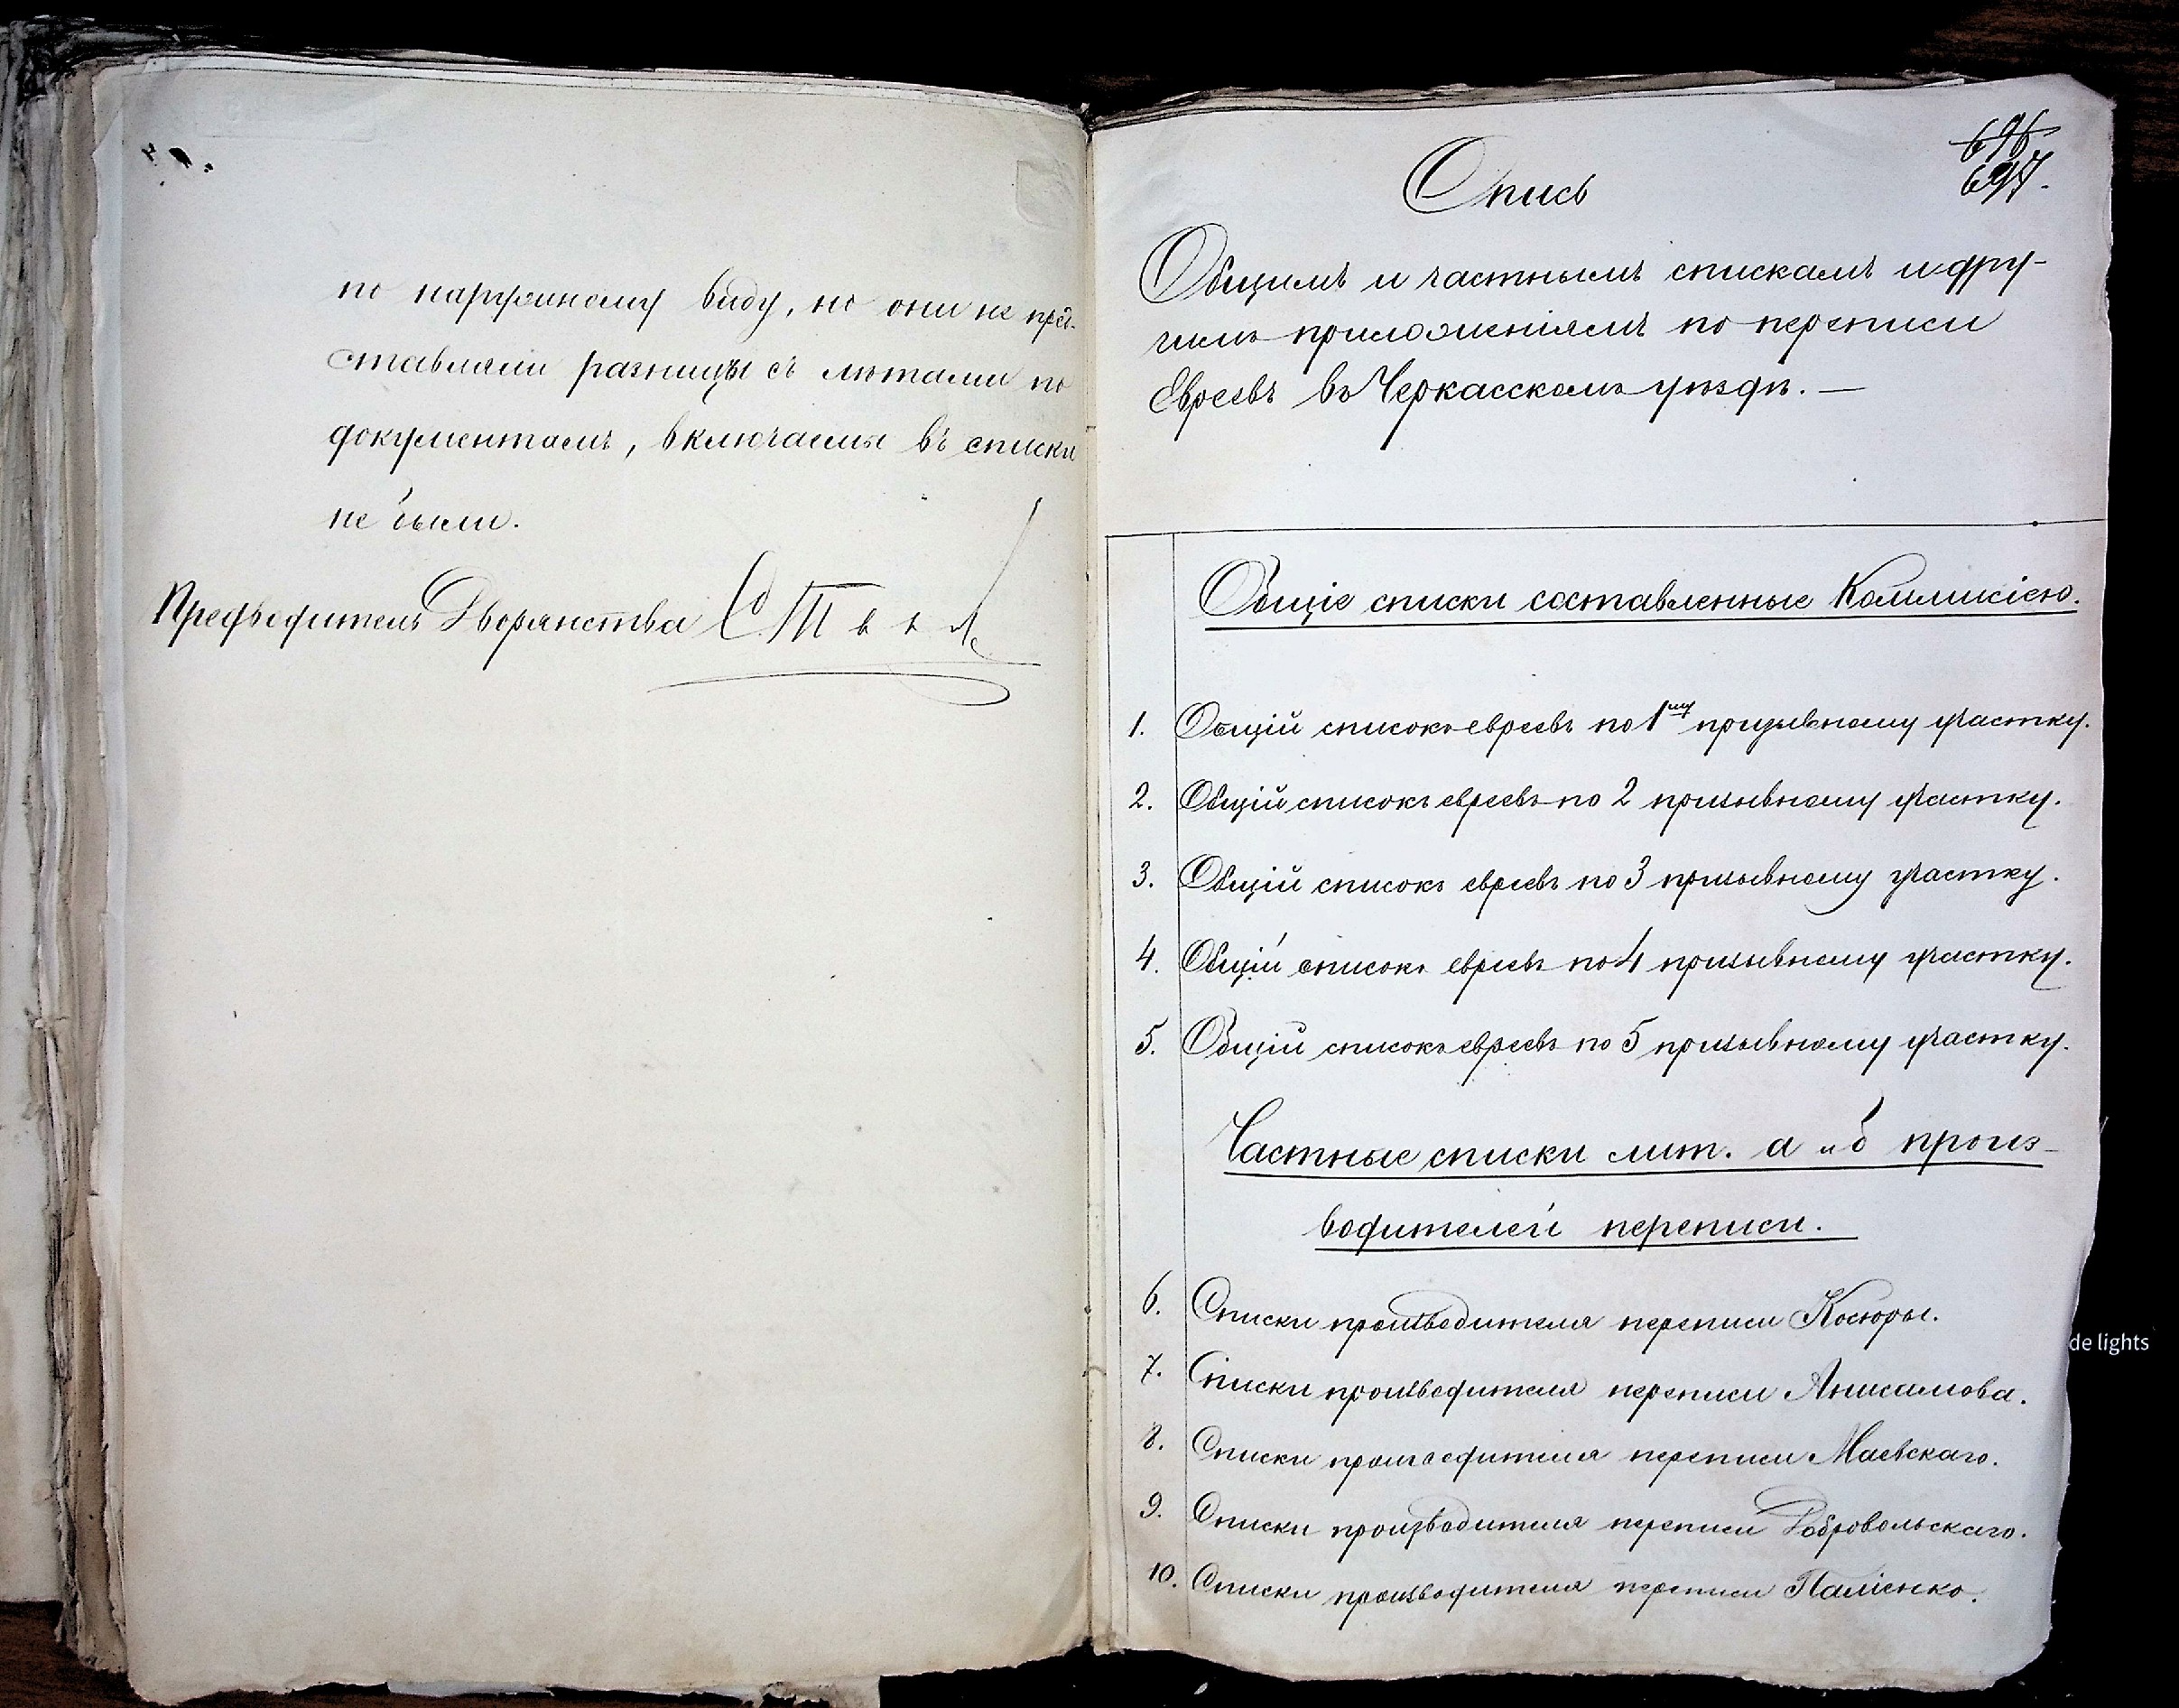 по наружному виду, но они не пред-
ставляли разницы съ лѣтами по
документамъ, включаемы въ списки
не были.
Предводитель Дворянства
696
697.
Опись
Общимъ и частнымъ спискамъ и дру-
гимъ приложеніямъ по переписи
Евреевъ въ Черкасскомъ уѣздѣ. —
Общіе списки составленные Коммисіею.
1. Общій списокъ евреевъ по 1му призывному участку.
2. Общій списокъ евреевъ по 2 призывному участку.
3. Общій списокъ евреевъ по 3 призывному участку.
4. Общій списокъ евреевъ по 4 призывному участку.
5. Общій списокъ евреевъ по 5 призывному участку.
Частные списки лит. а и б произ-
водителей переписи.
6. Списки производителя переписи Косюры.
7. Списки производителя переписи Анисимова.
8. Списки производителя переписи Маевскаго.
9. Списки производителя переписи Добровольскаго.
10. Списки производителя переписи
de lights